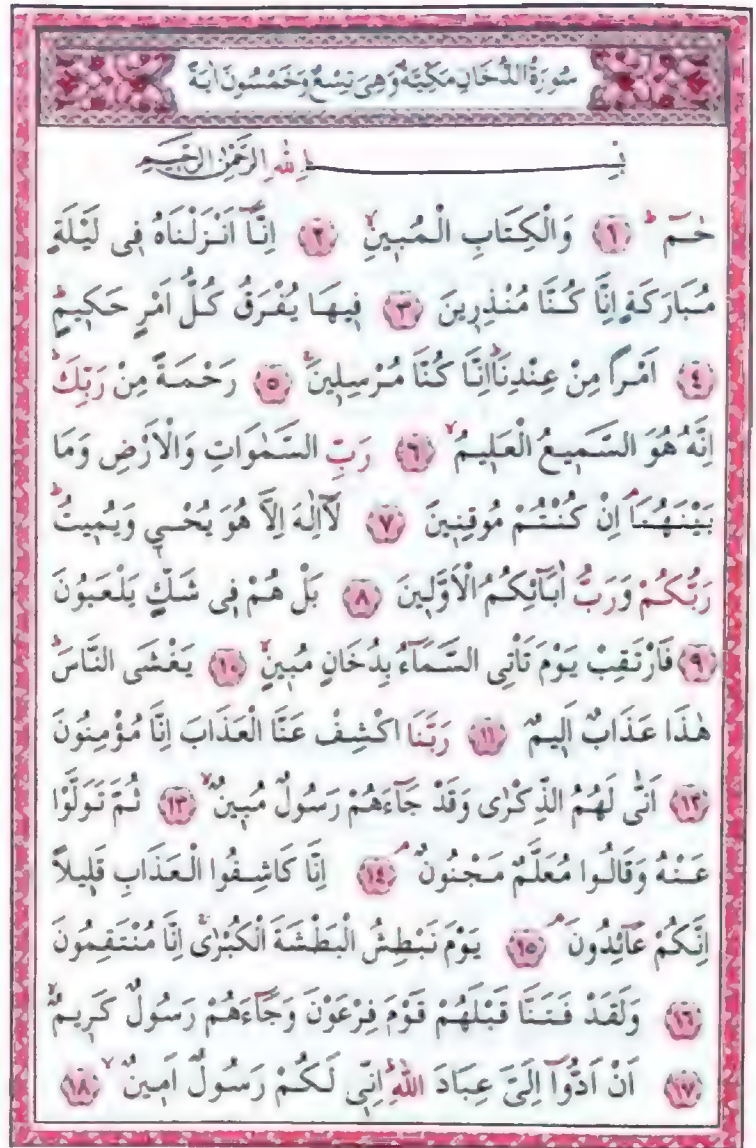 سُورَةُ الدُّخَانِ مَكِّيَّةٌ وَهِيَ تِسْعٌ وَخَمْسُونَ اٰيَةً
بِسْمِ اللّٰهِ الرَّحْمٰنِ الرَّحِيمِ
حٰمٓ ۜ ﴿١﴾ وَالْكِتَابِ الْمُبٖينِۙ ﴿٢﴾ اِنَّٓا اَنْزَلْنَاهُ فٖى لَيْلَةٍ
مُبَارَكَةٍ اِنَّا كُنَّا مُنْذِرٖينَ ﴿٣﴾ فٖيهَا يُفْرَقُ كُلُّ اَمْرٍ حَكٖيمٍۜ
﴿٤﴾ اَمْراً مِنْ عِنْدِنَاۜ اِنَّا كُنَّا مُرْسِلٖينَۚ ﴿٥﴾ رَحْمَةً مِنْ رَبِّكَۜ
اِنَّهُ هُوَ السَّمٖيعُ الْعَلٖيمُۙ ﴿٦﴾ رَبِّ السَّمٰوَاتِ وَالْاَرْضِ وَمَا
بَيْنَهُمَاۢ اِنْ كُنْتُمْ مُوقِنٖينَ ﴿٧﴾ لَٓا اِلٰهَ اِلَّا هُوَ يُحْيٖ وَيُمٖيتُۜ
رَبُّكُمْ وَرَبُّ اٰبَٓائِكُمُ الْاَوَّلٖينَ ﴿٨﴾ بَلْ هُمْ فٖى شَكٍّ يَلْعَبُونَ
﴿٩﴾ فَارْتَقِبْ يَوْمَ تَاْتِى السَّمَٓاءُ بِدُخَانٍ مُبٖينٍۙ ﴿١٠﴾ يَغْشَى النَّاسَۜ
هٰذَا عَذَابٌ اَلٖيمٌ ﴿١١﴾ رَبَّنَا اكْشِفْ عَنَّا الْعَذَابَ اِنَّا مُؤْمِنُونَ
﴿١٢﴾ اَنّٰى لَهُمُ الذِّكْرٰى وَقَدْ جَٓاءَهُمْ رَسُولٌ مُبٖينٌۙ ﴿١٣﴾ ثُمَّ تَوَلَّوْا
عَنْهُ وَقَالُوا مُعَلَّمٌ مَجْنُونٌۢ ﴿١٤﴾ اِنَّا كَاشِفُوا الْعَذَابِ قَلٖيلاً
اِنَّكُمْ عَٓائِدُونَۢ ﴿١٥﴾ يَوْمَ نَبْطِشُ الْبَطْشَةَ الْكُبْرٰىۚ اِنَّا مُنْتَقِمُونَ
﴿١٦﴾ وَلَقَدْ فَتَنَّا قَبْلَهُمْ قَوْمَ فِرْعَوْنَ وَجَٓاءَهُمْ رَسُولٌ كَرٖيمٌۙ
﴿١٧﴾ اَنْ اَدُّٓوا اِلَىَّ عِبَادَ اللّٰهِۜ اِنّٖى لَكُمْ رَسُولٌ اَمٖينٌۙ ﴿١٨﴾